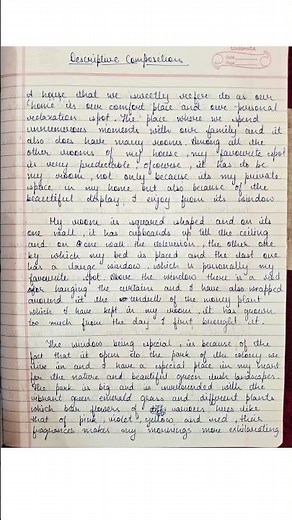 Descriptive Composition
A house that we sweetly refer to as our
home is our comfort place and our personal
relaxation spot. The place where we spend
innumerous moments with our family and it
also does have many rooms. Among all the
other rooms of my house, my favourite spot
is very predictable, ofcourse, it has to be
my room not only because its my private
space in my home but also because of the
beautiful display I enjoy from its window
My room is squared shaped and on its
one wall, it has cupboards up till the ceiling
and on one wall the television, the other one
by which my bed is placed and the last one
has a large window, which is personally my
favourite spot. Above the window there is a rod
for hanging the curtain and I have also wrapped
around it the tendrils of the money plant
which I have kept in my room, it has grown
too much from the day I first brought it.
The window being special, is because of the
fact that it opens to the park of the colony we
live in and I have a special place in my heart
for the nature and beautiful green lush landscapes.
The park is big and is surrounded with the
vibrant green emerald grass and different plants
which bear flowers of various hues like
that of pink, violet, yellow and red, their
fragrances makes my mornings more exhilarating